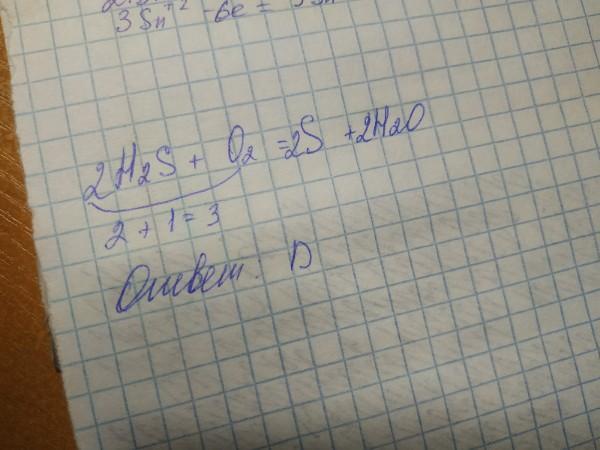 3Sn⁺² -6e =
2H₂S + O₂ = 2S + 2H₂O
2 + 1 = 3
Ответ: D